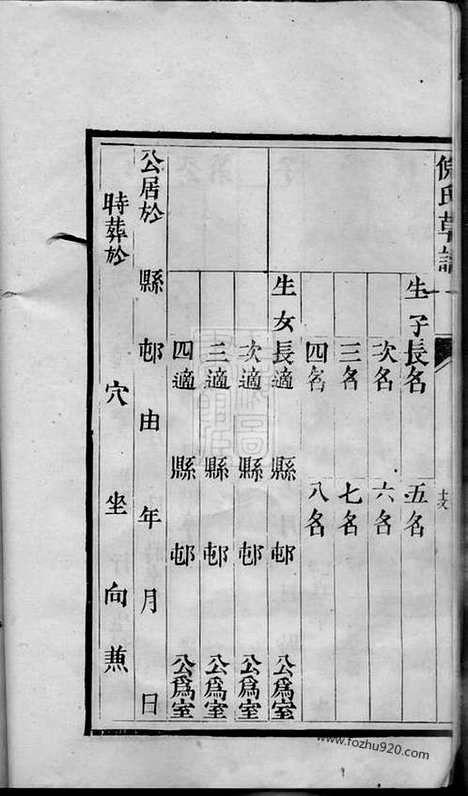 倪氏草譜
生子長名 五名
次名 六名
三名 七名
四名 八名
生女長適 縣 邨 公爲室
次適 縣 邨 公爲室
三適 縣 邨 公爲室
四適 縣 邨 公爲室
公居於 縣 邨由 年 月 日
時葬於 穴 坐 向 兼
www.fozhu920.com